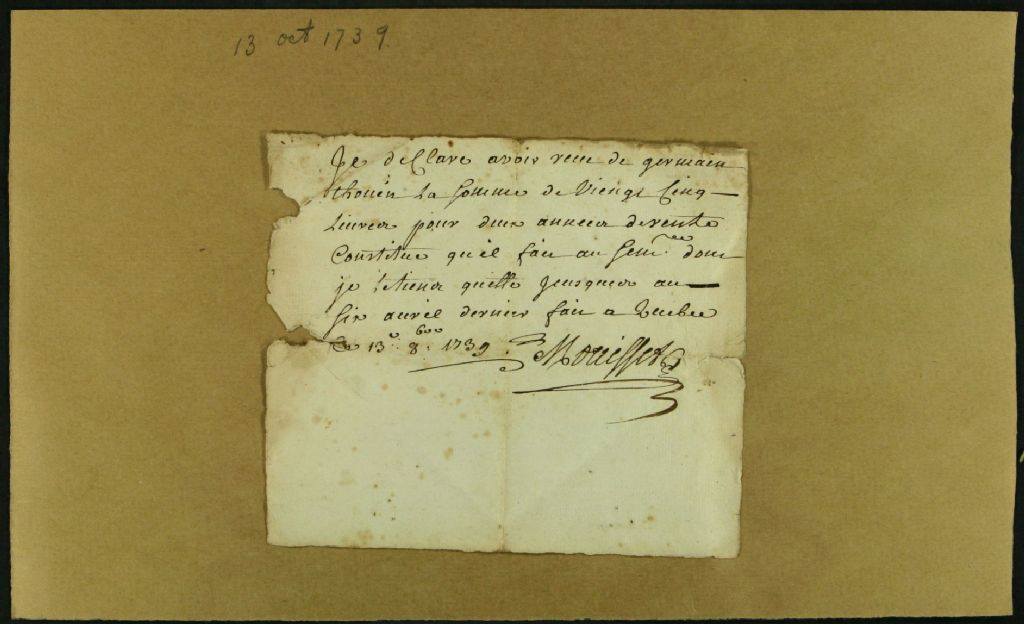 13 oct 1739
Je desClare avoir receu de germain
thouin La Somme de Viengt Cinq
Livrea pour deux anneea de rente
Constitue qu'il fait au Semre dont
je le tiena quitte Jeusquea au
Six auril dernier fait a Quebec
Ce 13e 8bre 1739 Mouisset